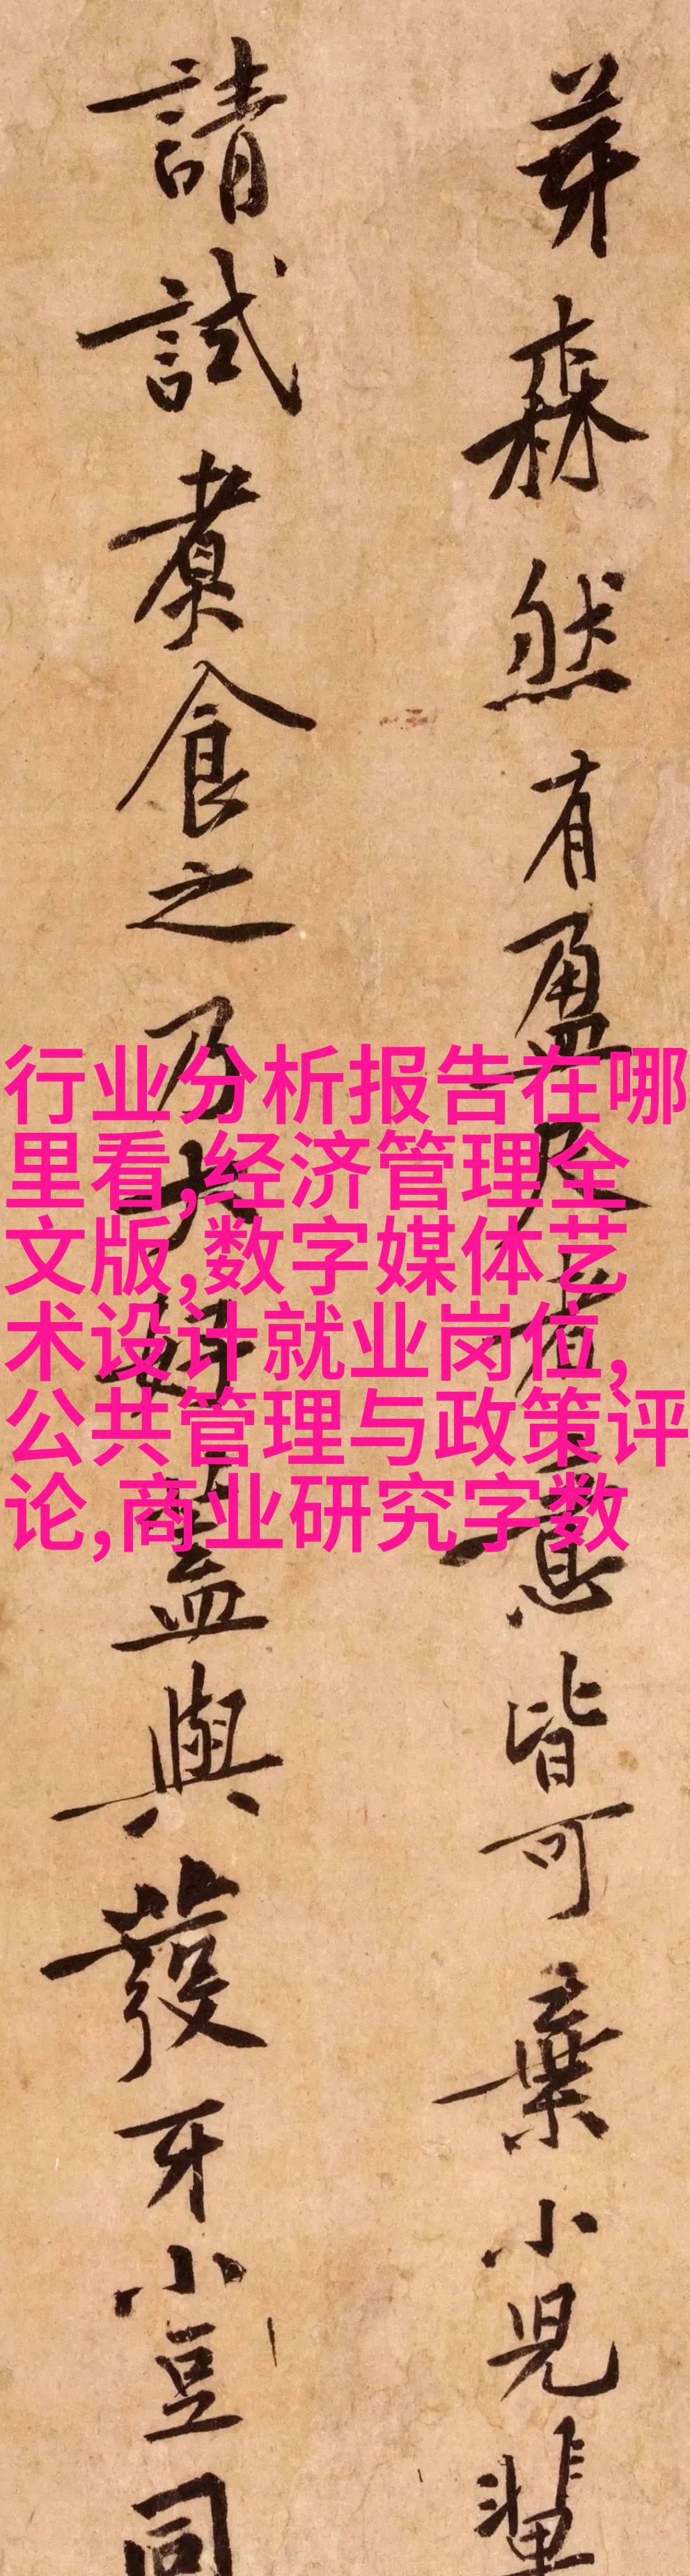 芽森然有盈尺者意皆可棄小兒輩
請試煮食之乃大好蓋與發牙小豆同
行业分析报告在哪
里看,经济管理全
文版,数字媒体艺
术设计就业岗位,
公共管理与政策评
论,商业研究字数